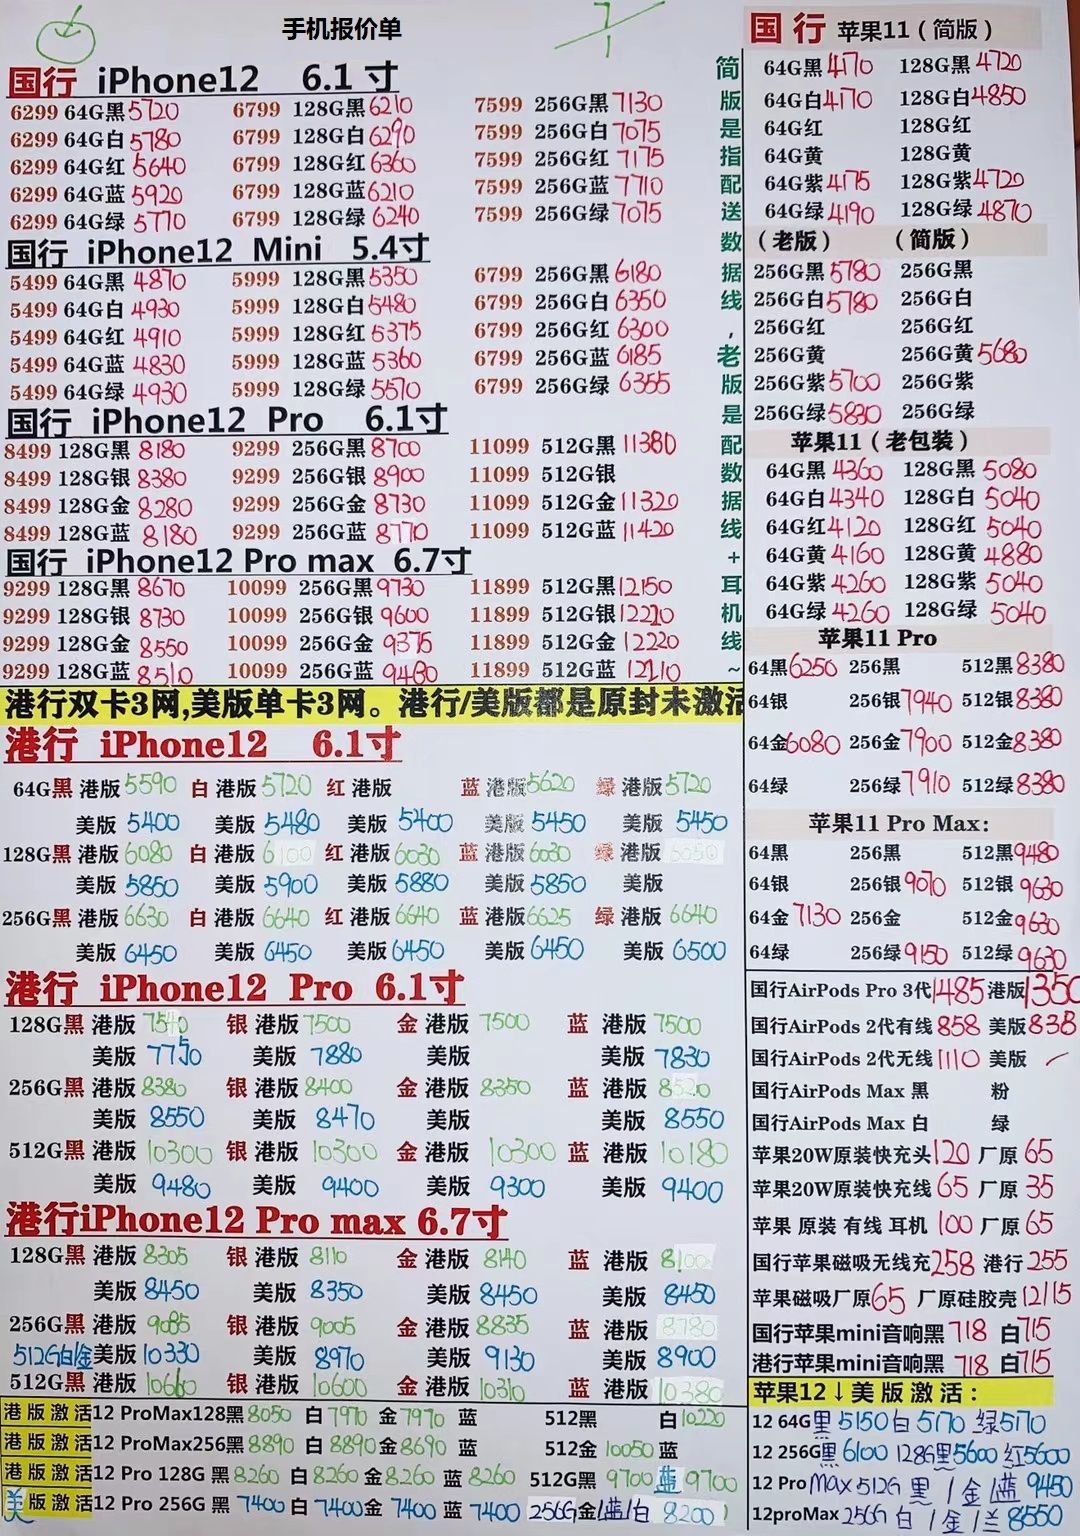 手机报价单
7/1
国行 iPhone12 6.1寸
6299 64G黑5720 6799 128G黑6210 7599 256G黑7130
6299 64G白5780 6799 128G白6290 7599 256G白7075
6299 64G红5640 6799 128G红6360 7599 256G红7175
6299 64G蓝5920 6799 128G蓝6210 7599 256G蓝7710
6299 64G绿5770 6799 128G绿6240 7599 256G绿7075
国行 iPhone12 Mini 5.4寸
5499 64G黑4870 5999 128G黑5350 6799 256G黑6180
5499 64G白4930 5999 128G白5480 6799 256G白6350
5499 64G红4910 5999 128G红5375 6799 256G红6300
5499 64G蓝4830 5999 128G蓝5360 6799 256G蓝6185
5499 64G绿4930 5999 128G绿5570 6799 256G绿6355
国行 iPhone12 Pro 6.1寸
8499 128G黑8180 9299 256G黑8700 11099 512G黑11380
8499 128G银8380 9299 256G银8900 11099 512G银
8499 128G金8280 9299 256G金8730 11099 512G金11320
8499 128G蓝8180 9299 256G蓝8770 11099 512G蓝11420
国行 iPhone12 Pro max 6.7寸
9299 128G黑8670 10099 256G黑9730 11899 512G黑12150
9299 128G银8730 10099 256G银9600 11899 512G银12210
9299 128G金8550 10099 256G金9375 11899 512G金12220
9299 128G蓝8510 10099 256G蓝9480 11899 512G蓝12110
简版是指配送数据线,老版是配数据线+耳机线~
港行双卡3网,美版单卡3网。港行/美版都是原封未激活
港行 iPhone12 6.1寸
64G黑 港版5590 白 港版5720 红 港版 蓝 港版5620 绿 港版5720
美版 5400 美版 5480 美版 5400 美版 5450 美版 5450
128G黑 港版6080 白 港版6100 红 港版6030 蓝 港版6030 绿 港版
美版 5850 美版 5900 美版 5880 美版 5850 美版
256G黑 港版6630 白 港版6640 红 港版6640 蓝 港版6625 绿 港版6640
美版 6450 美版 6450 美版 6450 美版 6450 美版 6500
港行 iPhone12 Pro 6.1寸
128G黑 港版 银 港版7500 金 港版7500 蓝 港版7500
美版 7750 美版 7880 美版 美版 7830
256G黑 港版8380 银 港版8400 金 港版8350 蓝 港版
美版 8550 美版 8470 美版 美版 8550
512G黑 港版10300 银 港版10300 金 港版10300 蓝 港版10180
美版 9480 美版 9400 美版 9300 美版 9400
港行iPhone12 Pro max 6.7寸
128G黑 港版8305 银 港版8110 金 港版8140 蓝 港版8100
美版 8450 美版 8350 美版 8450 美版 8450
256G黑 港版9085 银 港版9005 金 港版8835 蓝 港版8780
512G白/金美版10330 美版 8970 美版 9130 美版 8900
512G黑 港版10660 银 港版10600 金 港版10310 蓝 港版10380
港版激活 12 ProMax128黑8050 白7970 金7970 蓝 512黑 白10220
港版激活 12 ProMax256黑8890 白8890金8690 蓝 512金 10050蓝
港版激活 12 Pro 128G 黑8260 白8260金8260 蓝 8260 512G黑 9700 蓝 9700
美版激活 12 Pro 256G 黑 7400 白 7400金 7400 蓝 7400 256G金/蓝/白 8200
国行 苹果11(简版)
64G黑4170 128G黑4720
64G白4170 128G白4850
64G红 128G红
64G黄 128G黄
64G紫4175 128G紫4720
64G绿4190 128G绿4870
(老版) (简版)
256G黑5780 256G黑
256G白5780 256G白
256G红 256G红
256G黄 256G黄5680
256G紫5700 256G紫
256G绿5830 256G绿
苹果11(老包装)
64G黑4360 128G黑5080
64G白4340 128G白 5040
64G红4120 128G红 5040
64G黄4160 128G黄4880
64G紫4260 128G紫5040
64G绿4260 128G绿 5040
苹果11 Pro
64黑6250 256黑 512黑8380
64银 256银7940 512银8380
64金6080 256金7900 512金8380
64绿 256绿7910 512绿8380
苹果11 Pro Max:
64黑 256黑 512黑9480
64银 256银9070 512银9630
64金7130 256金 512金9630
64绿 256绿9150 512绿9630
国行AirPods Pro 3代1485港版1350
国行AirPods 2代有线858 美版838
国行AirPods 2代无线1110 美版
国行AirPods Max 黑 粉
国行AirPods Max 白 绿
苹果20W原装快充头120 厂原 65
苹果20W原装快充线65 厂原 35
苹果 原装 有线 耳机 100 厂原65
国行苹果磁吸无线充258 港行255
苹果磁吸厂原65 厂原硅胶壳12/15
国行苹果mini音响黑718 白715
港行苹果mini音响黑 718 白715
苹果12↓美版激活:
12 64G黑 5150白 5170 绿5170
12 256G黑 6100 128G黑5600 红5600
12 Pro max 512G 黑/金/蓝 9450
12proMax 256G 白/金/兰 8550